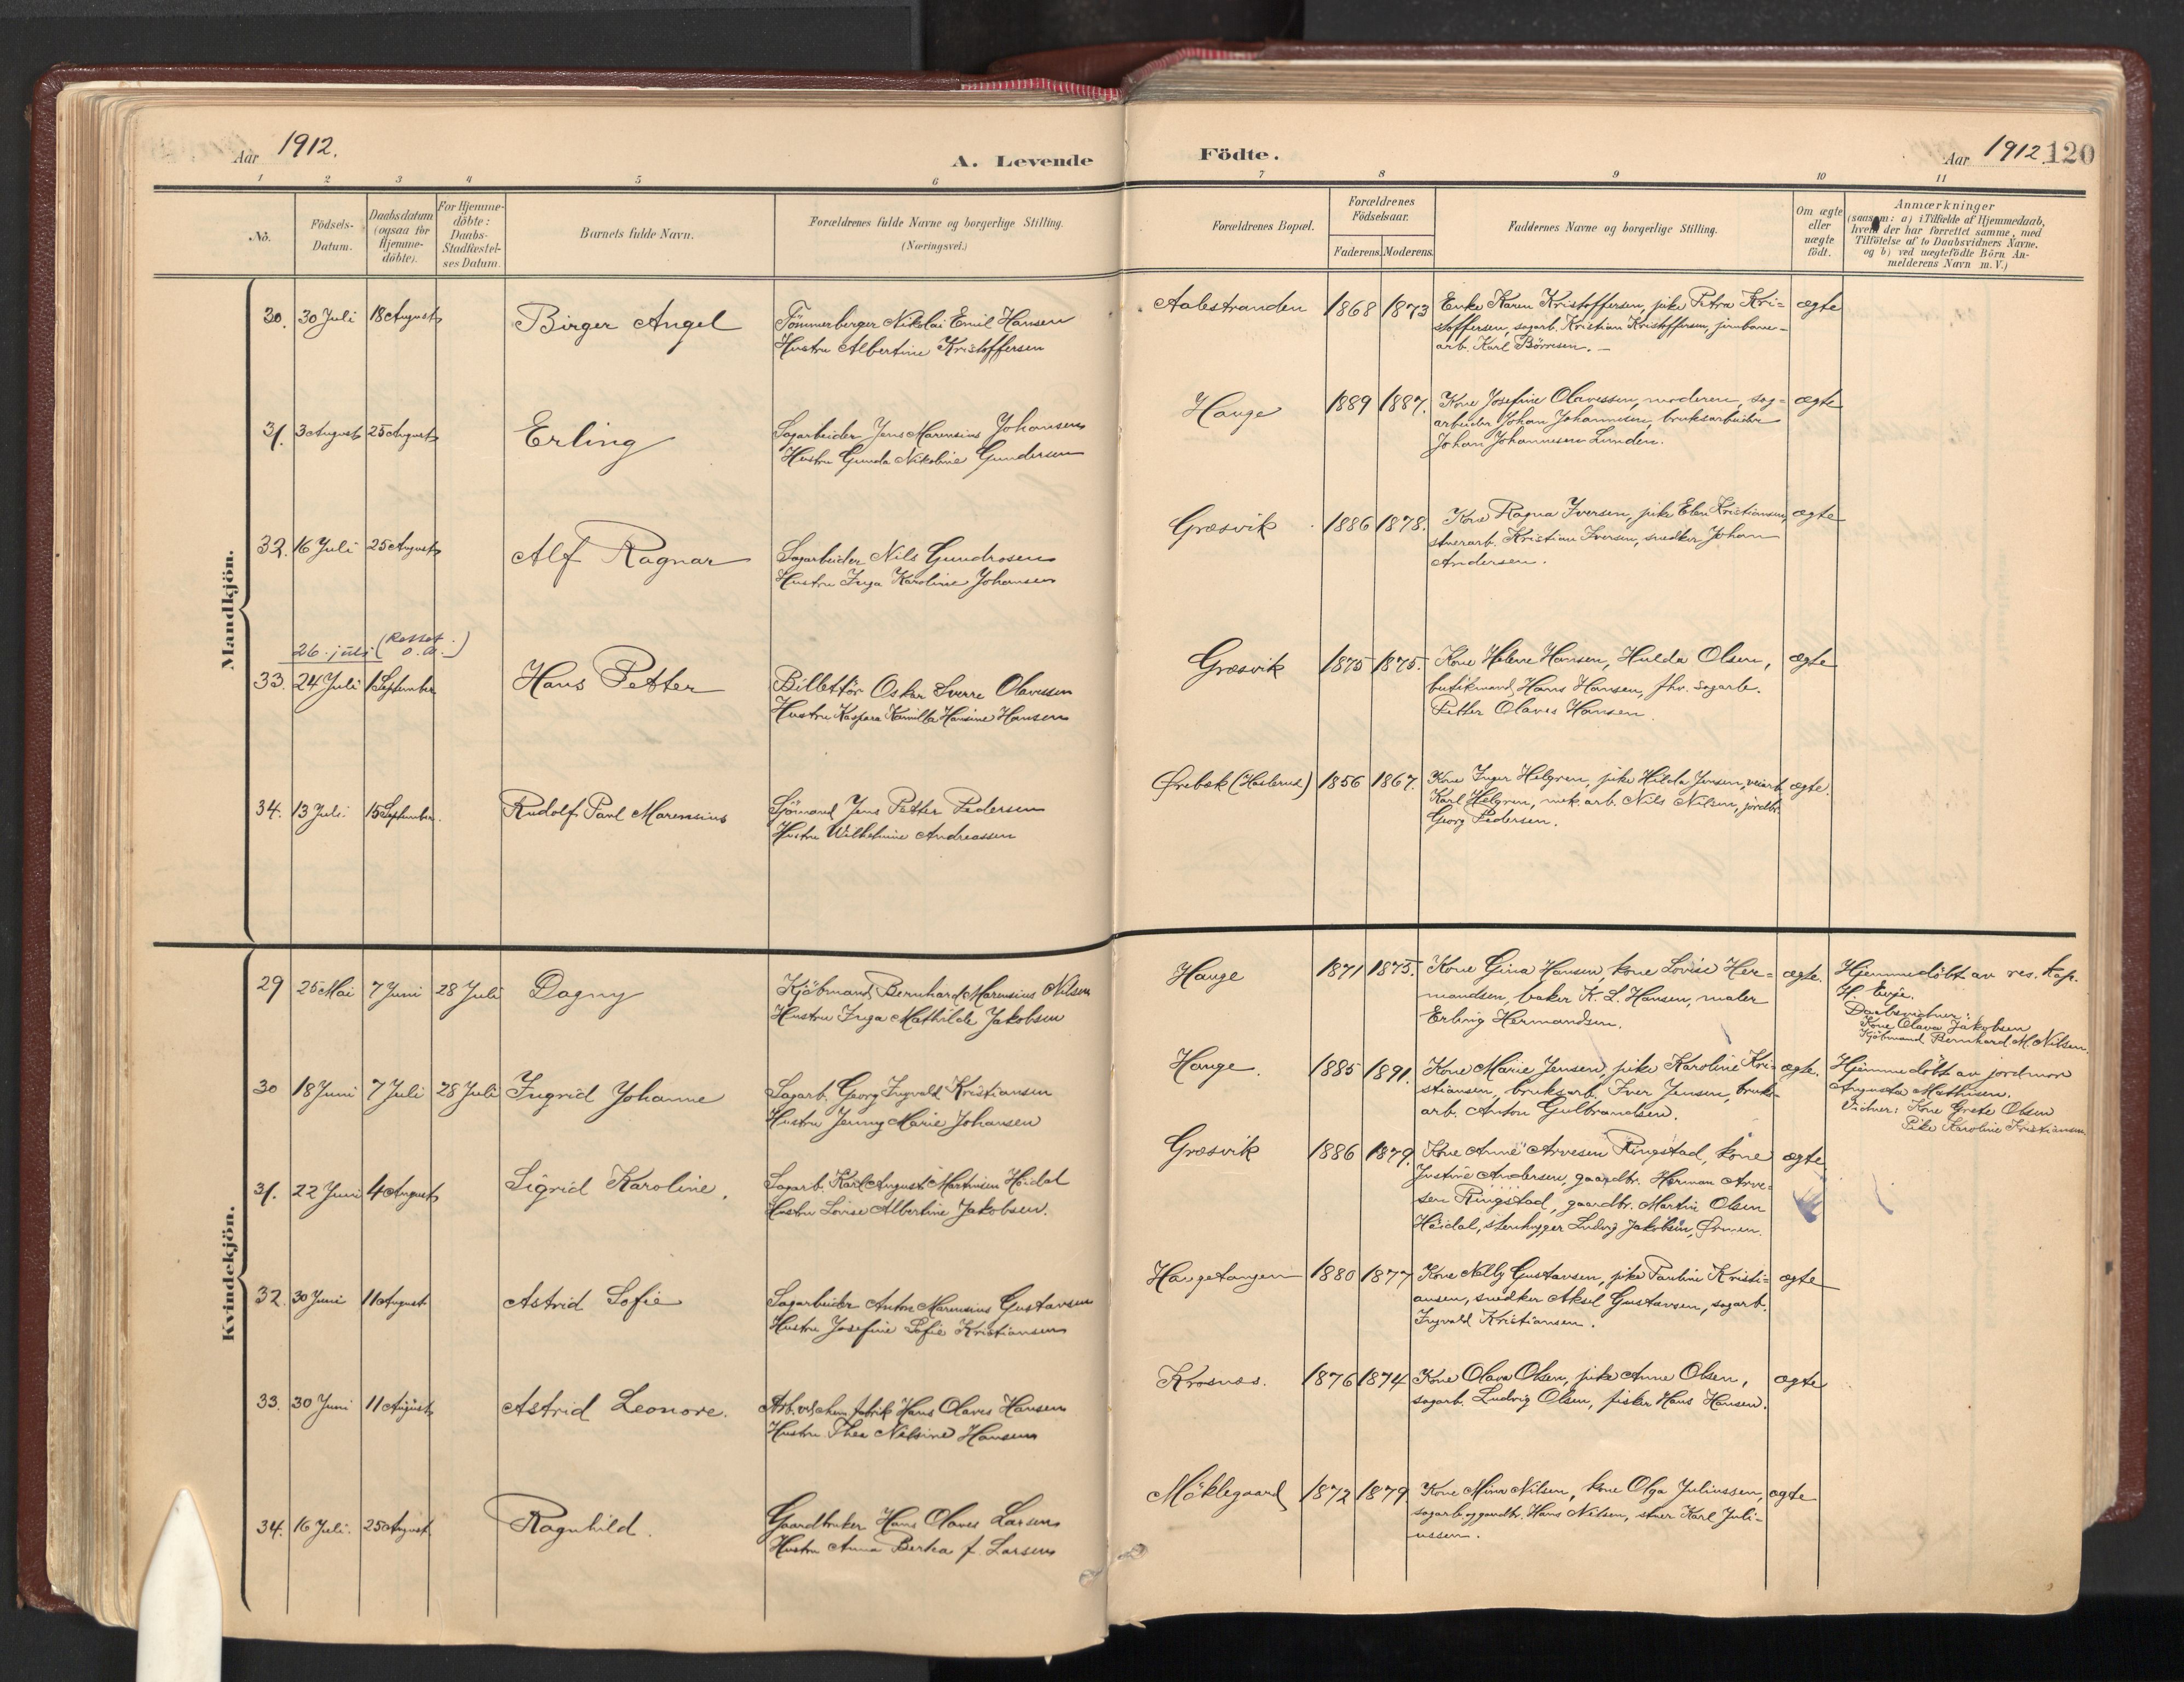 Aar 1912.
A. Levende Födte.
Aar 1912 120
1 2 3 4 5 6 7 8 9 10 11
Nô.
Födsels-
Datum.
Daabsdatum
(ogsaa for
Hjemme-
döbte).
For Hjemme-
döbte:
Daabs-
Stadfæstel-
ses Datum.
Barnets fulde Navn.
Forældrenes fulde Navne og borgerlige Stilling.
(Næringsvei.)
Forældrenes Bopæl.
Forældrenes
Födselsaar.
Faderens. Moderens.
Faddernes Navne og borgerlige Stilling.
Om ægte
eller
uægte
födt.
Anmærkninger
(saasom: a) i Tilfælde af Hjemmedaab,
hvem der har forrettet samme, med
Tilföielse af to Daabsvidners Navne.
og b) ved uægtefödte Börn An-
melderens Navn m.V.)
Mandkjön.
30. 30 Juli 18 August Birger Angel
Tömmerberger Nikolai Emil Hansen
Hustru Albertine Kristoffersen
Aalestranden 1868 1873
Enke Karen Kristoffersen, pike Petra Kri=
stoffersen, sagarb. Kristian Kristoffersen, jernbane-
arb. Karl Börresen. —
ægte
31. 3 August 25 August Erling
Sagarbeider Jens Marensius Johansen
Hustru Gunda Nikoline Gundersen
Hauge 1889 1887.
Kone Josefine Olavessen, moderen, sag=
arbeider Johan Johannesen, bruksarbeider
Johan Johannesen Lunden.
ægte
32. 16 Juli 25 August Alf Ragnar
Sagarbeider Nils Gundrosen
Hustru Inga Karoline Johansen
Græsvik 1886 1878.
Kone Ragna Iversen, pike Elen Kristiansen,
stuerarb. Kristian Iversen, snedker Johan
Andersen.
ægte
26. juli (Rettet o.a.)
33. 24 Juli 1 September Hans Petter
Billettör Oskar Sverre Olavessen
Hustru Kaspara Kamilla Hansine Hansen
Græsvik 1875 1875.
Kone Helene Hansen, Hulda Olsen,
butikmand Hans Hansen, fhv. sagarb.
Petter Olaves Hansen
ægte
34. 13 Juli 15 September. Rudolf Paul Marensius
Sjömand Jens Petter Pedersen
Hustru Wilhelmine Andreassen
Ørebek 1856 1867.
Kone Inger Helgren, pike Hilda Jensen, veiarb.
Karl Helgren, mek. arb. Nils Nilsen, jordbr.
Georg Pedersen.
ægte.
Kvindekjön.
29 25 Mai 7 Juni 28 Juli Dagny
Kjöbmand Bernhard Marensius Nilsen
Hustru Inga Mathilde Jakobsen
Hauge 1871 1875.
Kone Gina Hansen, kone Lovise Her=
mandsen, baker K. L. Hansen, maler
Erling Hermandsen.
ægte.
Hjemmedöbt av res. kap.
H. Evje.
Daabsvidner:
Kone Olava Jakobsen
Kjöbmand Bernhard M. Nilsen.
30 18 Juni 7 Juli 28 Juli Ingrid Johanne
Sagarb. Georg Ingvald Kristiansen
Hustru Jenny Marie Johansen
Hauge. 1885 1891.
Kone Marie Jensen, pike Karoline Kri=
stiansen, bruksarb. Iver Jensen, bruks-
arb. Anton Gulbrandsen.
ægte.
Hjemmedöbt av jordmor
Augusta Mathisen.
Vidner: Kone Grete Olsen
Pike Karoline Kristiansen.
31. 22 Juni 4 August Sigrid Karoline.
Sagarb. Karl August Martinsen Höidal
Hustru Lovise Albertine Jakobsen.
Græsvik 1886 1879.
Kone Anne Arvesen Ringstad, kone
Justine Andersen, gaardbr. Herman Arve=
sen Ringstad, gaardbr. Martin Olsen
Höidal, stenhugger Ludvig Jakobsen, Ørmen.
ægte
32. 30 Juni 11 August. Astrid Sofie
Sagarbeider Anton Marensius Gustavsen
Hustru Josefine Sofie Kristiansen
Haugetangen 1880 1877
Kone Nelly Gustavsen, pike Pauline Kristi=
ansen, snedker Aksel Gustavsen, sagarb.
Ingvald Kristiansen.
ægte
33. 30 Juni 11 August Astrid Leonore.
Arb. ved kem. fabrik Hans Olaves Hansen
Hustru Thea Nilsine Hansen
Krosnes. 1876 1874
Kone Olava Olsen, pike Anne Olsen,
sagarb. Ludvig Olsen, fisker Hans Hansen.
ægte
34. 16 Juli. 25 August Ragnhild.
Gaardbruker Hans Olaves Larsen
Hustru Anna Berta f. Larsen
Möklegaard 1872 1879
Kone Mina Nilsen, kone Olga Juliussen,
sagarb. og gaardbr. Hans Nilsen, stuer Karl Juli=
ussen.
ægte